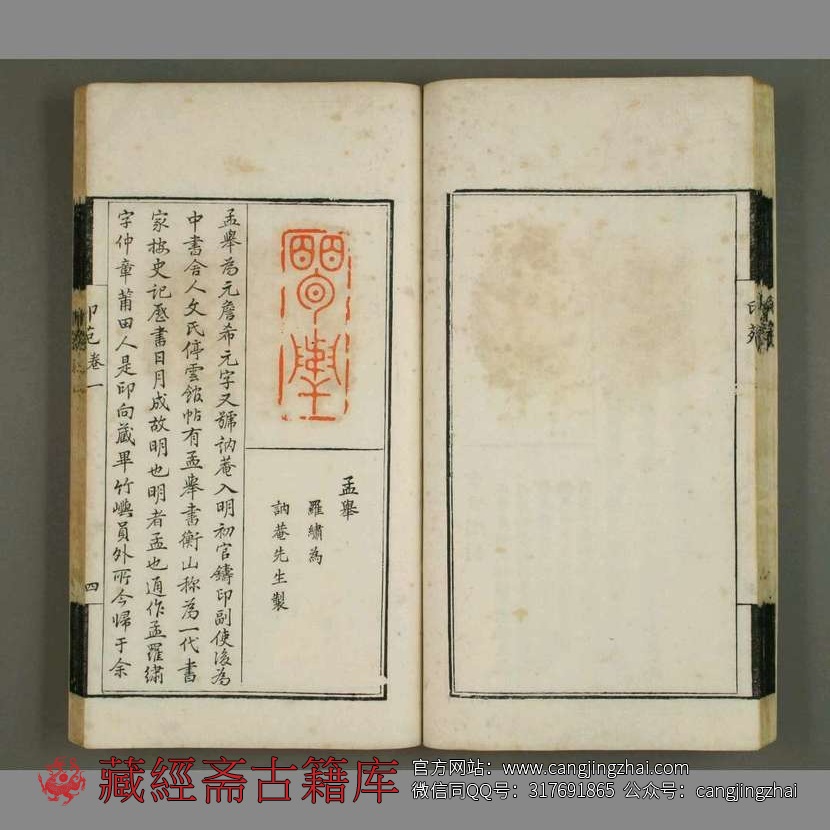 孟舉
羅繡為
訥菴先生製
孟舉為元詹希元字又號訥菴入明初官鑄印副使後為
中書舍人文氏停雲館帖有孟舉書衡山称為一代書
家按史記歷書日月成故明也明者孟也通作孟羅繡
字仲章莆田人是印向藏畢竹嶼員外所今歸于余
印范卷一
四
藏經斋古籍库
官方网站：www.cangjingzhai.com
微信同QQ号：317691865 公众号：cangjingzhai